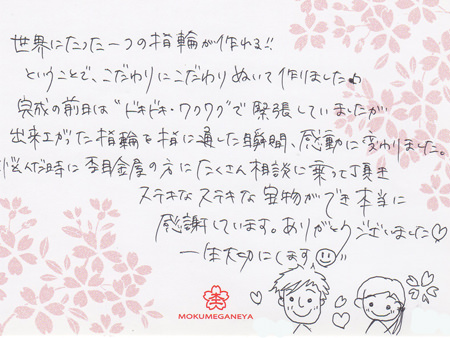 世界にたった一つの指輪が作れる!!
ということで、こだわりにこだわりぬいて作りました♪
完成の前日は"ドキドキ・ワクワク"で緊張していましたが
出来上がった指輪を指に通した瞬間、感動に変わりました。
悩んだ時に杢目金屋の方にたくさん相談に乗って頂き
ステキなステキな宝物ができ本当に
感謝しています。ありがとうございました♡
一生大切にします。
MOKUMEGANEYA